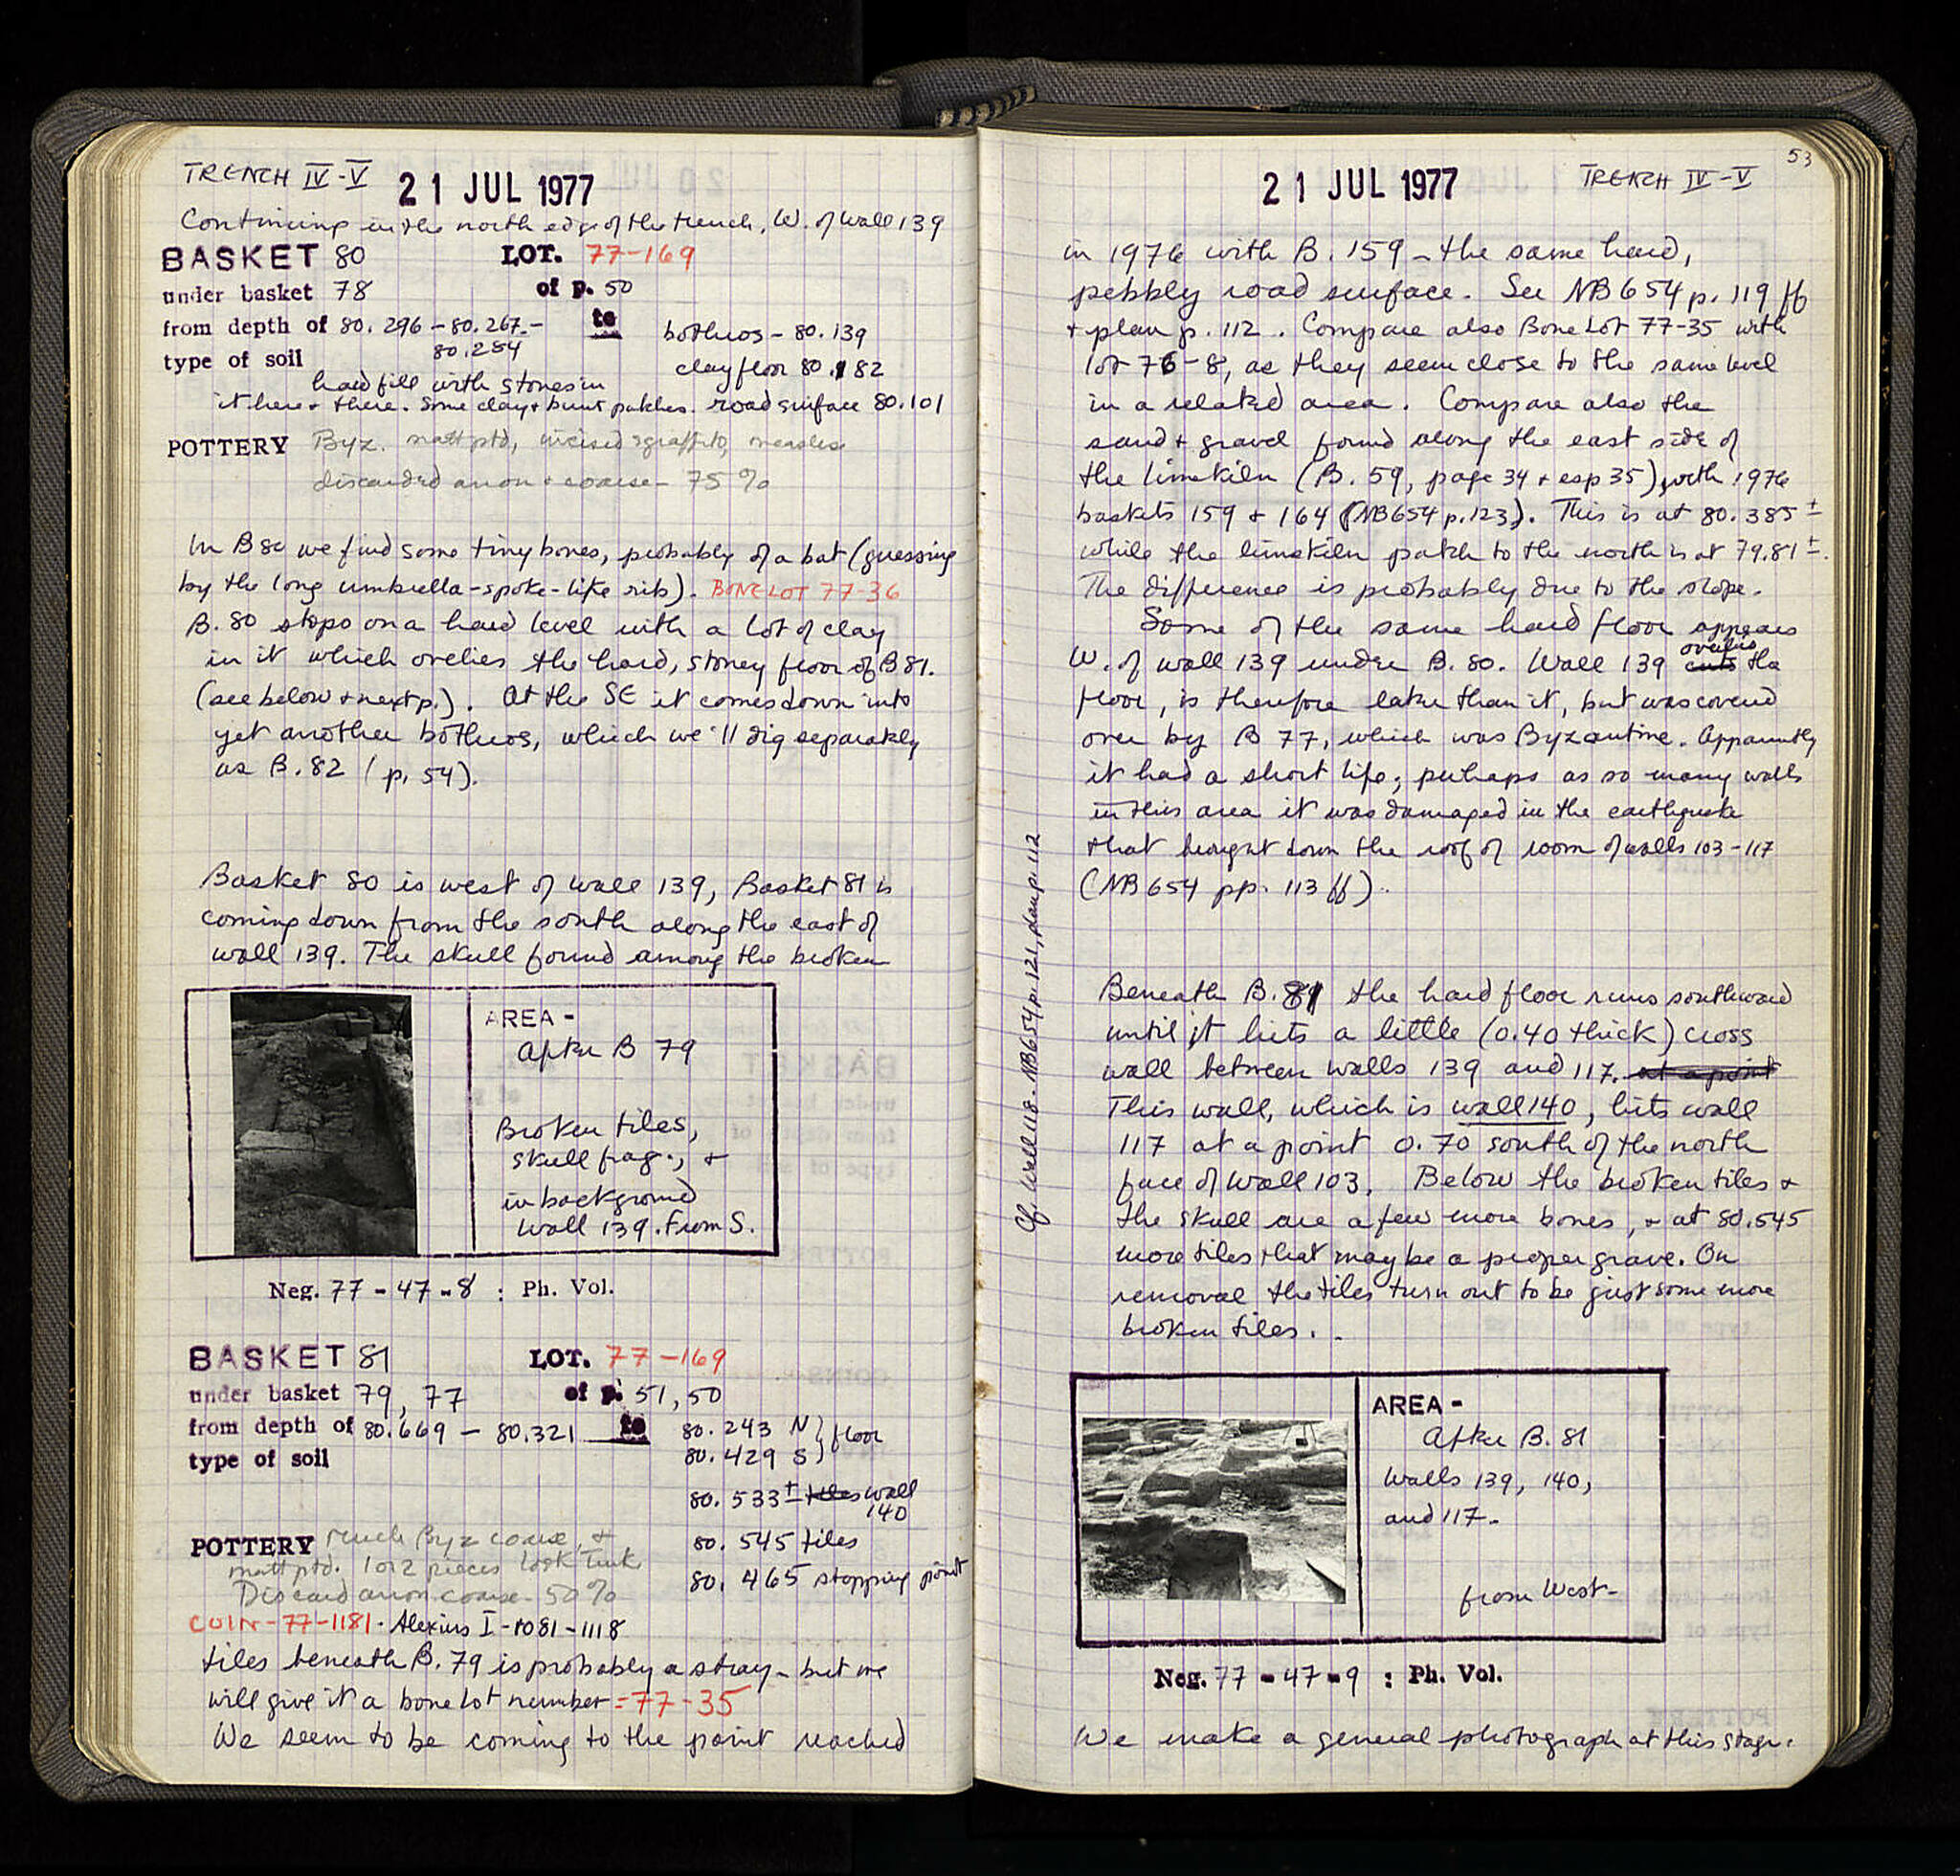 TRENCH IV-V 21 JUL 1977
Continuing in the north edge of the trench, W. of wall 139
BASKET 80 LOT. 77-169
under basket 78 of p. 50
from depth of 80.296 - 80.267 - to bothros - 80.139
80.284
type of soil clay floor 80.182
hard fill with stones in
it here + there. Some clay + burnt patches. road surface 80.101
POTTERY Byz. matt ptd, incised sgraffito, measles
discarded anon + coarse - 75%
In B 80 we find some tiny bones, probably of a bat (guessing
by the long umbrella-spoke-like rib). BONE LOT 77-36
B. 80 stops on a hard level with a lot of clay
in it which overlies the hard, stoney floor of B 81.
(see below + next p.). At the SE it comes down into
yet another bothros, which we'll dig separately
as B. 82 (p. 54).
Basket 80 is west of wall 139, Basket 81 is
coming down from the south along the east of
wall 139. The skull found among the broken
AREA -
After B 79
Broken tiles,
skull frag., +
in background
Wall 139. From S.
Neg. 77 - 47 - 8 : Ph. Vol.
BASKET 81 LOT. 77-169
under basket 79, 77 of p. 51, 50
from depth of 80.669 - 80.321 to 80.243 N } floor
type of soil 80.429 S
80.533± tiles wall
140
POTTERY much Byz coarse, + 80.545 tiles
matt ptd. 1 or 2 pieces look Turk
80.465 stopping point
Discard anon. coarse - 50%
COIN - 77-1181 - Alexius I - 1081-1118
tiles beneath B. 79 is probably a stray - but we
will give it a bone lot number = 77-35
We seem to be coming to the point reached
53
21 JUL 1977 TRENCH IV-V
in 1976 with B. 159 - the same hard,
pebbly road surface. See NB 654 p. 119 ff
+ plan p. 112. Compare also Bone Lot 77-35 with
lot 76-8, as they seem close to the same level
in a related area. Compare also the
sand + gravel found along the east side of
the limekiln (B. 59, page 34 + esp 35) with 1976
baskets 159 + 164 (NB 654 p. 123). This is at 80.385±
while the limekiln patch to the north is at 79.81±.
The difference is probably due to the slope.
Some of the same hard floor appears
W. of wall 139 under B. 80. Wall 139 cuts overlies the
floor, is therefore later than it, but was covered
over by B 77, which was Byzantine. Apparently
it had a short life; perhaps as so many walls
in this area it was damaged in the earthquake
that brought down the roof of room of walls 103-117
(NB 654 pp. 113 ff).
Cf. Wall 118 - NB 654 p. 121, plan p. 112
Beneath B. 81 the hard floor runs southward
until it hits a little (0.40 thick) cross
wall between walls 139 and 117. at a point
This wall, which is wall 140, hits wall
117 at a point 0.70 south of the north
face of Wall 103. Below the broken tiles +
the skull are a few more bones, + at 80.545
more tiles that may be a proper grave. On
removal the tiles turn out to be just some more
broken tiles.
AREA -
After B. 81
Walls 139, 140,
and 117.
from West -
Neg. 77 - 47 - 9 : Ph. Vol.
We make a general photograph at this stage.